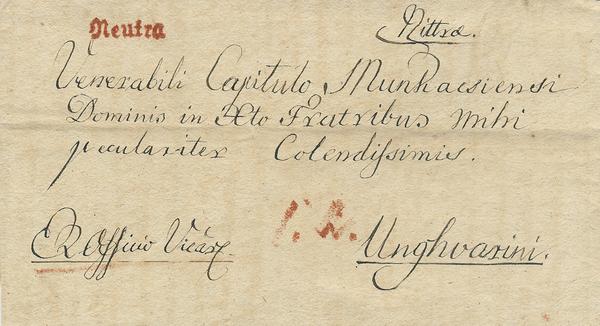 Neutra
Nittræ.
Venerabili Capitulo Munkacsiensi
Dominis in Xto Fratribus mihi
peculariter Colendissimis.
Ex Officio
Unghvarini.